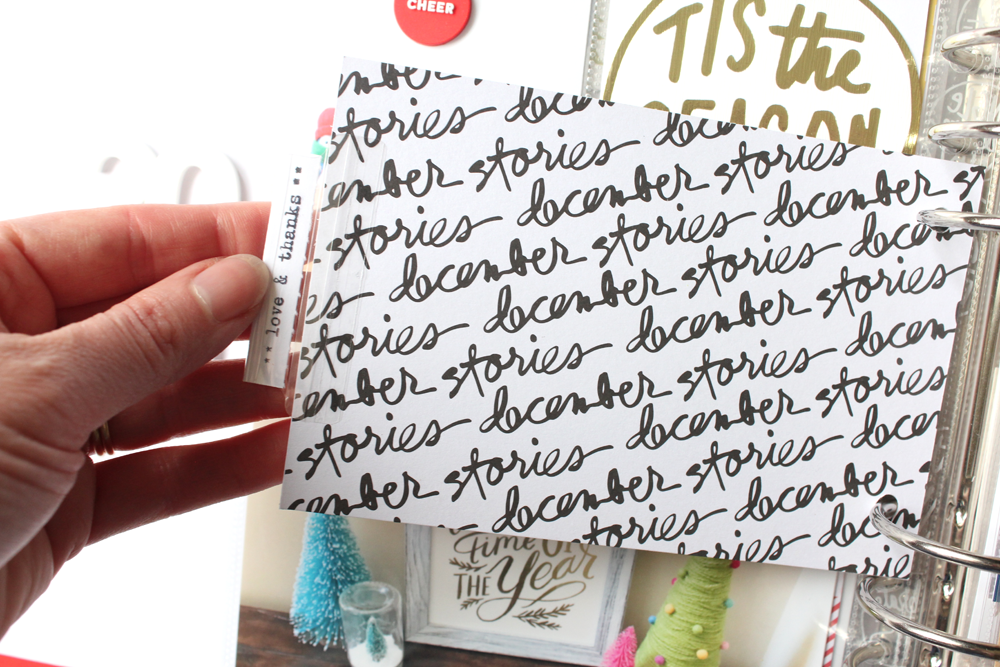 CHEER
TIS the
SEASON
** love & thanks **
ember
stories december
ember stories decem
stories december stories
es december stories december st
stories december stories decem
ember stories december stories
stories december stories decem
ember stories december stories
december stories decem
stories december
stories decem
storie
Time OF
THE Year